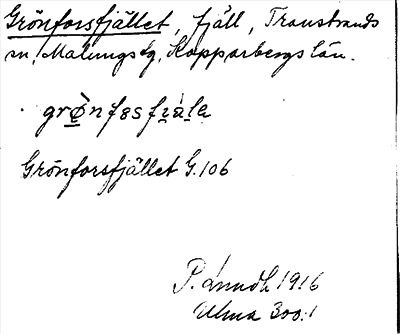 Grönforsfjället, fjäll, Transtrands
sn, Malungs tg, Kopparbergs län.
Grönforsfjället G.106
P. Lundh 1916
Ulma 300:1